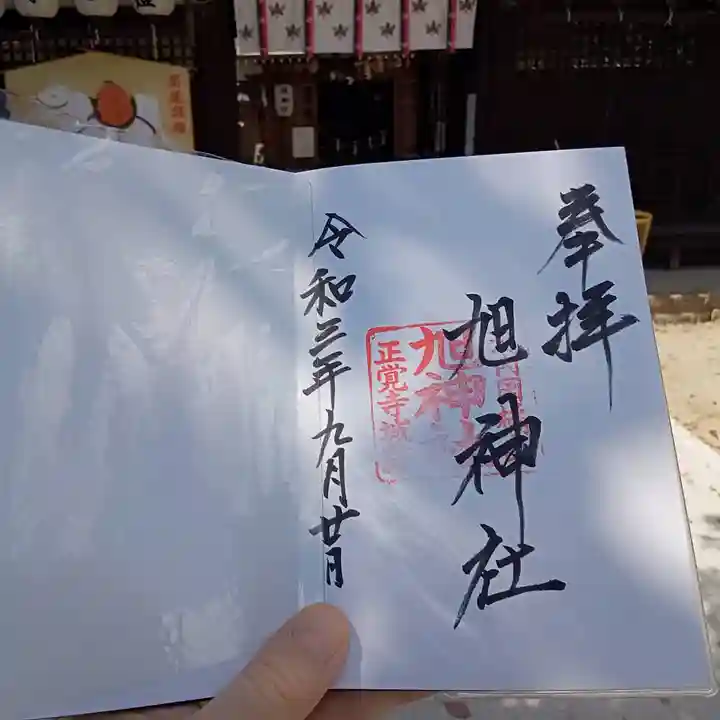 奉拝
旭神社
旭神社
正覚寺城
令和三年九月廿日